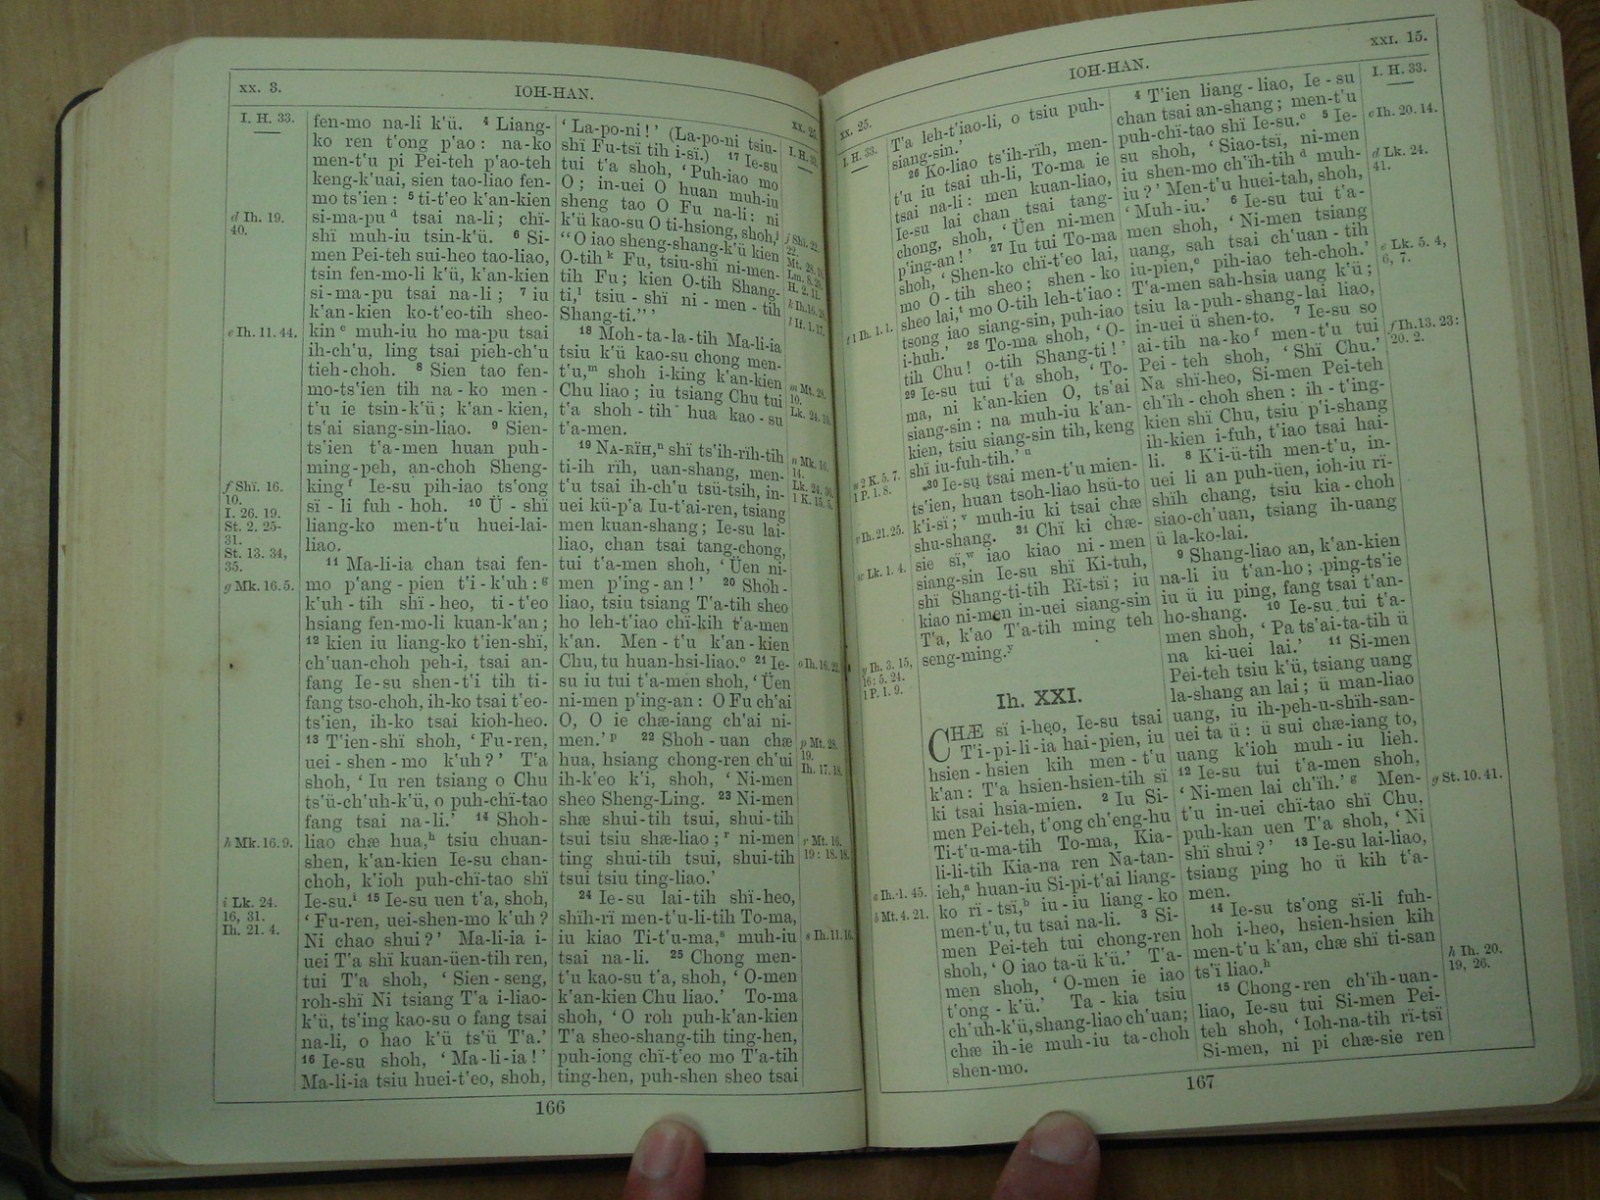 xx. 3.
IOH-HAN.
xx. 25.
I. H. 33.
d Ih. 19.
40.
e Ih. 11. 44.
f Shï. 16.
10.
I. 26. 19.
St. 2. 25-
31.
St. 13. 34,
35.
g Mk. 16. 5.
h Mk. 16. 9.
i Lk. 24.
16, 31.
Ih. 21. 4.
fen-mo na-li k'ü. 4 Liang-
ko ren t'ong p'ao : na-ko
men-t'u pi Pei-teh p'ao-teh
keng-k'uai, sien tao-liao fen-
mo ts'ien : 5 ti-t'eo k'an-kien
si-ma-pu d tsai na-li ; chï-
shï muh-iu tsin-k'ü. 6 Si-
men Pei-teh sui-heo tao-liao,
tsin fen-mo-li k'ü, k'an-kien
si-ma-pu tsai na-li ; 7 iu
k'an-kien ko-t'eo-tih sheo-
kin e muh-iu ho ma-pu tsai
ih-ch'u, ling tsai pieh-ch'u
tieh-choh. 8 Sien tao fen-
mo-ts'ien tih na-ko men-
t'u ie tsin-k'ü ; k'an-kien,
ts'ai siang-sin-liao. 9 Sien-
ts'ien t'a-men huan puh-
ming-peh, an-choh Sheng-
king f Ie-su pih-iao ts'ong
sï-li fuh-hoh. 10 Ü-shï
liang-ko men-t'u huei-lai-
liao.
11 Ma-li-ia chan tsai fen-
mo p'ang-pien t'i-k'uh : g
k'uh-tih shï-heo, ti-t'eo
hsiang fen-mo-li kuan-k'an ;
12 kien iu liang-ko t'ien-shï,
ch'uan-choh peh-i, tsai an-
fang Ie-su shen-t'i tih ti-
fang tso-choh, ih-ko tsai t'eo-
ts'ien, ih-ko tsai kioh-heo.
13 T'ien-shï shoh, ‘ Fu-ren,
uei-shen-mo k'uh ? ’ T'a
shoh, ‘ Iu ren tsiang o Chu
ts'ü-ch'uh-k'ü, o puh-chï-tao
fang tsai na-li.’ 14 Shoh-
liao chæ hua, h tsiu chuan-
shen, k'an-kien Ie-su chan-
choh, k'ioh puh-chï-tao shï
Ie-su. i 15 Ie-su uen t'a, shoh,
‘ Fu-ren, uei-shen-mo k'uh ?
Ni chao shui ? ’ Ma-li-ia i-
uei T'a shï kuan-üen-tih ren,
tui T'a shoh, ‘ Sien-seng,
roh-shï Ni tsiang T'a i-liao-
k'ü, ts'ing kao-su o fang tsai
na-li, o hao k'ü ts'ü T'a.’
16 Ie-su shoh, ‘ Ma-li-ia ! ’
Ma-li-ia tsiu huei-t'eo, shoh,
‘ La-po-ni ! ’ (La-po-ni tsiu-
shï Fu-tsï tih i-sï.) 17 Ie-su
tui t'a shoh, ‘ Puh-iao mo
O ; in-uei O huan muh-iu
sheng tao O Fu na-li : ni
k'ü kao-su O ti-hsiong, shoh, j
“ O iao sheng-shang-k'ü kien
O-tih k Fu, tsiu-shï ni-men-
tih Fu ; kien O-tih Shang-
ti, l tsiu-shï ni-men-tih
Shang-ti.” ’
18 Moh-ta-la-tih Ma-li-ia
tsiu k'ü kao-su chong men-
t'u, m shoh i-king k'an-kien
Chu liao ; iu tsiang Chu tui
t'a shoh-tih hua kao-su
t'a-men.
19 NA-RÏH, n shï ts'ih-rïh-tih
ti-ih rïh, uan-shang, men-
t'u tsai ih-ch'u tsü-tsih, in-
uei kü-p'a Iu-t'ai-ren, tsiang
men kuan-shang ; Ie-su lai-
liao, chan tsai tang-chong,
tui t'a-men shoh, ‘ Üen ni-
men p'ing-an ! ’ 20 Shoh-
liao, tsiu tsiang T'a-tih sheo
ho leh-t'iao chï-kih t'a-men
k'an. Men-t'u k'an-kien
Chu, tu huan-hsi-liao. o 21 Ie-
su iu tui t'a-men shoh, ‘ Üen
ni-men p'ing-an : O Fu ch'ai
O, O ie chæ-iang ch'ai ni-
men.’ p 22 Shoh-uan chæ
hua, hsiang chong-ren ch'ui
ih-k'eo k'i, shoh, ‘ Ni-men
sheo Sheng-Ling. 23 Ni-men
shæ shui-tih tsui, shui-tih
tsui tsiu shæ-liao ; r ni-men
ting shui-tih tsui, shui-tih
tsui tsiu ting-liao.’
24 Ie-su lai-tih shï-heo,
shïh-rï men-t'u-li-tih To-ma,
iu kiao Ti-t'u-ma, s muh-iu
tsai na-li. 25 Chong men-
t'u kao-su t'a, shoh, ‘ O-men
k'an-kien Chu liao.’ To-ma
shoh, ‘ O roh puh-k'an-kien
T'a sheo-shang-tih ting-hen,
puh-iong chï-t'eo mo T'a-tih
ting-hen, puh-shen sheo tsai
m Mt. 28.
10.
n Mk. 16.
14.
o Ih. 16. 22.
p Mt. 28.
19.
Ih. 17. 18.
r Mt. 16.
19 : 18. 18.
s Ih. 11. 16.
166
xx. 25.
IOH-HAN.
xxi. 15.
I. H. 33.
t 1 Ih. 1. 1.
u 2 K. 5. 7.
1 P. 1. 8.
v Ih. 21. 25.
w Lk. 1. 4.
y Ih. 3. 15,
16 : 5. 24.
1 P. 1. 9.
a Ih. 1. 45.
b Mt. 4. 21.
T'a leh-t'iao-li, o tsiu puh-
siang-sin.’
26 Ko-liao ts'ih-rïh, men-
t'u iu tsai uh-li, To-ma ie
tsai na-li : men kuan-liao,
Ie-su lai chan tsai tang-
chong, shoh, ‘ Üen ni-men
p'ing-an ! ’ 27 Iu tui To-ma
shoh, ‘ Shen-ko chï-t'eo lai,
mo O-tih sheo ; shen-ko
sheo lai, t mo O-tih leh-t'iao :
tsong iao siang-sin, puh-iao
i-huh.’ 28 To-ma shoh, ‘ O-
tih Chu ! o-tih Shang-ti ! ’
29 Ie-su tui t'a shoh, ‘ To-
ma, ni k'an-kien O, ts'ai
siang-sin : na muh-iu k'an-
kien, tsiu siang-sin tih, keng
shï iu-fuh-tih.’ u
30 Ie-su tsai men-t'u mien-
ts'ien, huan tsoh-liao hsü-to
k'i-sï ; v muh-iu ki tsai chæ
shu-shang. 31 Chï ki chæ-
sie sï, w iao kiao ni-men
siang-sin Ie-su shï Ki-tuh,
shï Shang-ti-tih Rï-tsï ; iu
kiao ni-men in-uei siang-sin
T'a, k'ao T'a-tih ming teh
seng-ming. y
Ih. XXI.
CHÆ sï i-heo, Ie-su tsai
T'i-pi-li-ia hai-pien, iu
hsien-hsien kih men-t'u
k'an : T'a hsien-hsien-tih sï
ki tsai hsia-mien. 2 Iu Si-
men Pei-teh, t'ong ch'eng-hu
Ti-t'u-ma-tih To-ma, Kia-
li-li-tih Kia-na ren Na-tan-
ieh, a huan-iu Si-pi-t'ai liang-
ko rï-tsï, b iu-iu liang-ko
men-t'u, tu tsai na-li. 3 Si-
men Pei-teh tui chong-ren
shoh, ‘ O iao ta-ü k'ü.’ T'a-
men shoh, ‘ O-men ie iao
t'ong-k'ü.’ Ta-kia tsiu
ch'uh-k'ü, shang-liao ch'uan ;
chæ ih-ie muh-iu ta-choh
shen-mo.
4 T'ien liang-liao, Ie-su
chan tsai an-shang ; men-t'u
puh-chï-tao shï Ie-su. c 5 Ie-
su shoh, ‘ Siao-tsï, ni-men
iu shen-mo ch'ïh-tih d muh-
iu ? ’ Men-t'u huei-tah, shoh,
‘ Muh-iu.’ 6 Ie-su tui t'a-
men shoh, ‘ Ni-men tsiang
uang, sah tsai ch'uan-tih
iu-pien, e pih-iao teh-choh.’
T'a-men sah-hsia uang k'ü ;
tsiu la-puh-shang-lai liao,
in-uei ü shen-to. 7 Ie-su so
ai-tih na-ko f men-t'u tui
Pei-teh shoh, ‘ Shï Chu.’
Na shï-heo, Si-men Pei-teh
ch'ïh-choh shen : ih-t'ing-
kien shï Chu, tsiu p'i-shang
ih-kien i-fuh, t'iao tsai hai-
li. 8 K'i-ü-tih men-t'u, in-
uei li an puh-üen, ioh-iu rï-
shïh chang, tsiu kia-choh
siao-ch'uan, tsiang ih-uang
ü la-ko-lai.
9 Shang-liao an, k'an-kien
na-li iu t'an-ho ; ping-ts'ie
iu ü iu ping, fang tsai t'an-
ho-shang. 10 Ie-su tui t'a-
men shoh, ‘ Pa ts'ai-ta-tih ü
na ki-uei lai.’ 11 Si-men
Pei-teh tsiu k'ü, tsiang uang
la-shang an lai ; ü man-liao
uang, iu ih-peh-u-shïh-san-
uei ta ü : ü sui chæ-iang to,
uang k'ioh muh-iu lieh.
12 Ie-su tui t'a-men shoh,
‘ Ni-men lai ch'ïh.’ g Men-
t'u in-uei chï-tao shï Chu,
puh-kan uen T'a shoh, ‘ Ni
shï shui ? ’ 13 Ie-su lai-liao,
tsiang ping ho ü kih t'a-
men.
14 Ie-su ts'ong sï-li fuh-
hoh i-heo, hsien-hsien kih
men-t'u k'an, chæ shï ti-san
ts'ï liao. h
15 Chong-ren ch'ïh-uan-
liao, Ie-su tui Si-men Pei-
teh shoh, ‘ Ioh-na-tih rï-tsï
Si-men, ni pi chæ-sie ren
I. H. 33.
c Ih. 20. 14.
d Lk. 24.
41.
e Lk. 5. 4,
6, 7.
f Ih. 13. 23 :
20. 2.
g St. 10. 41.
h Ih. 20.
19, 26.
167